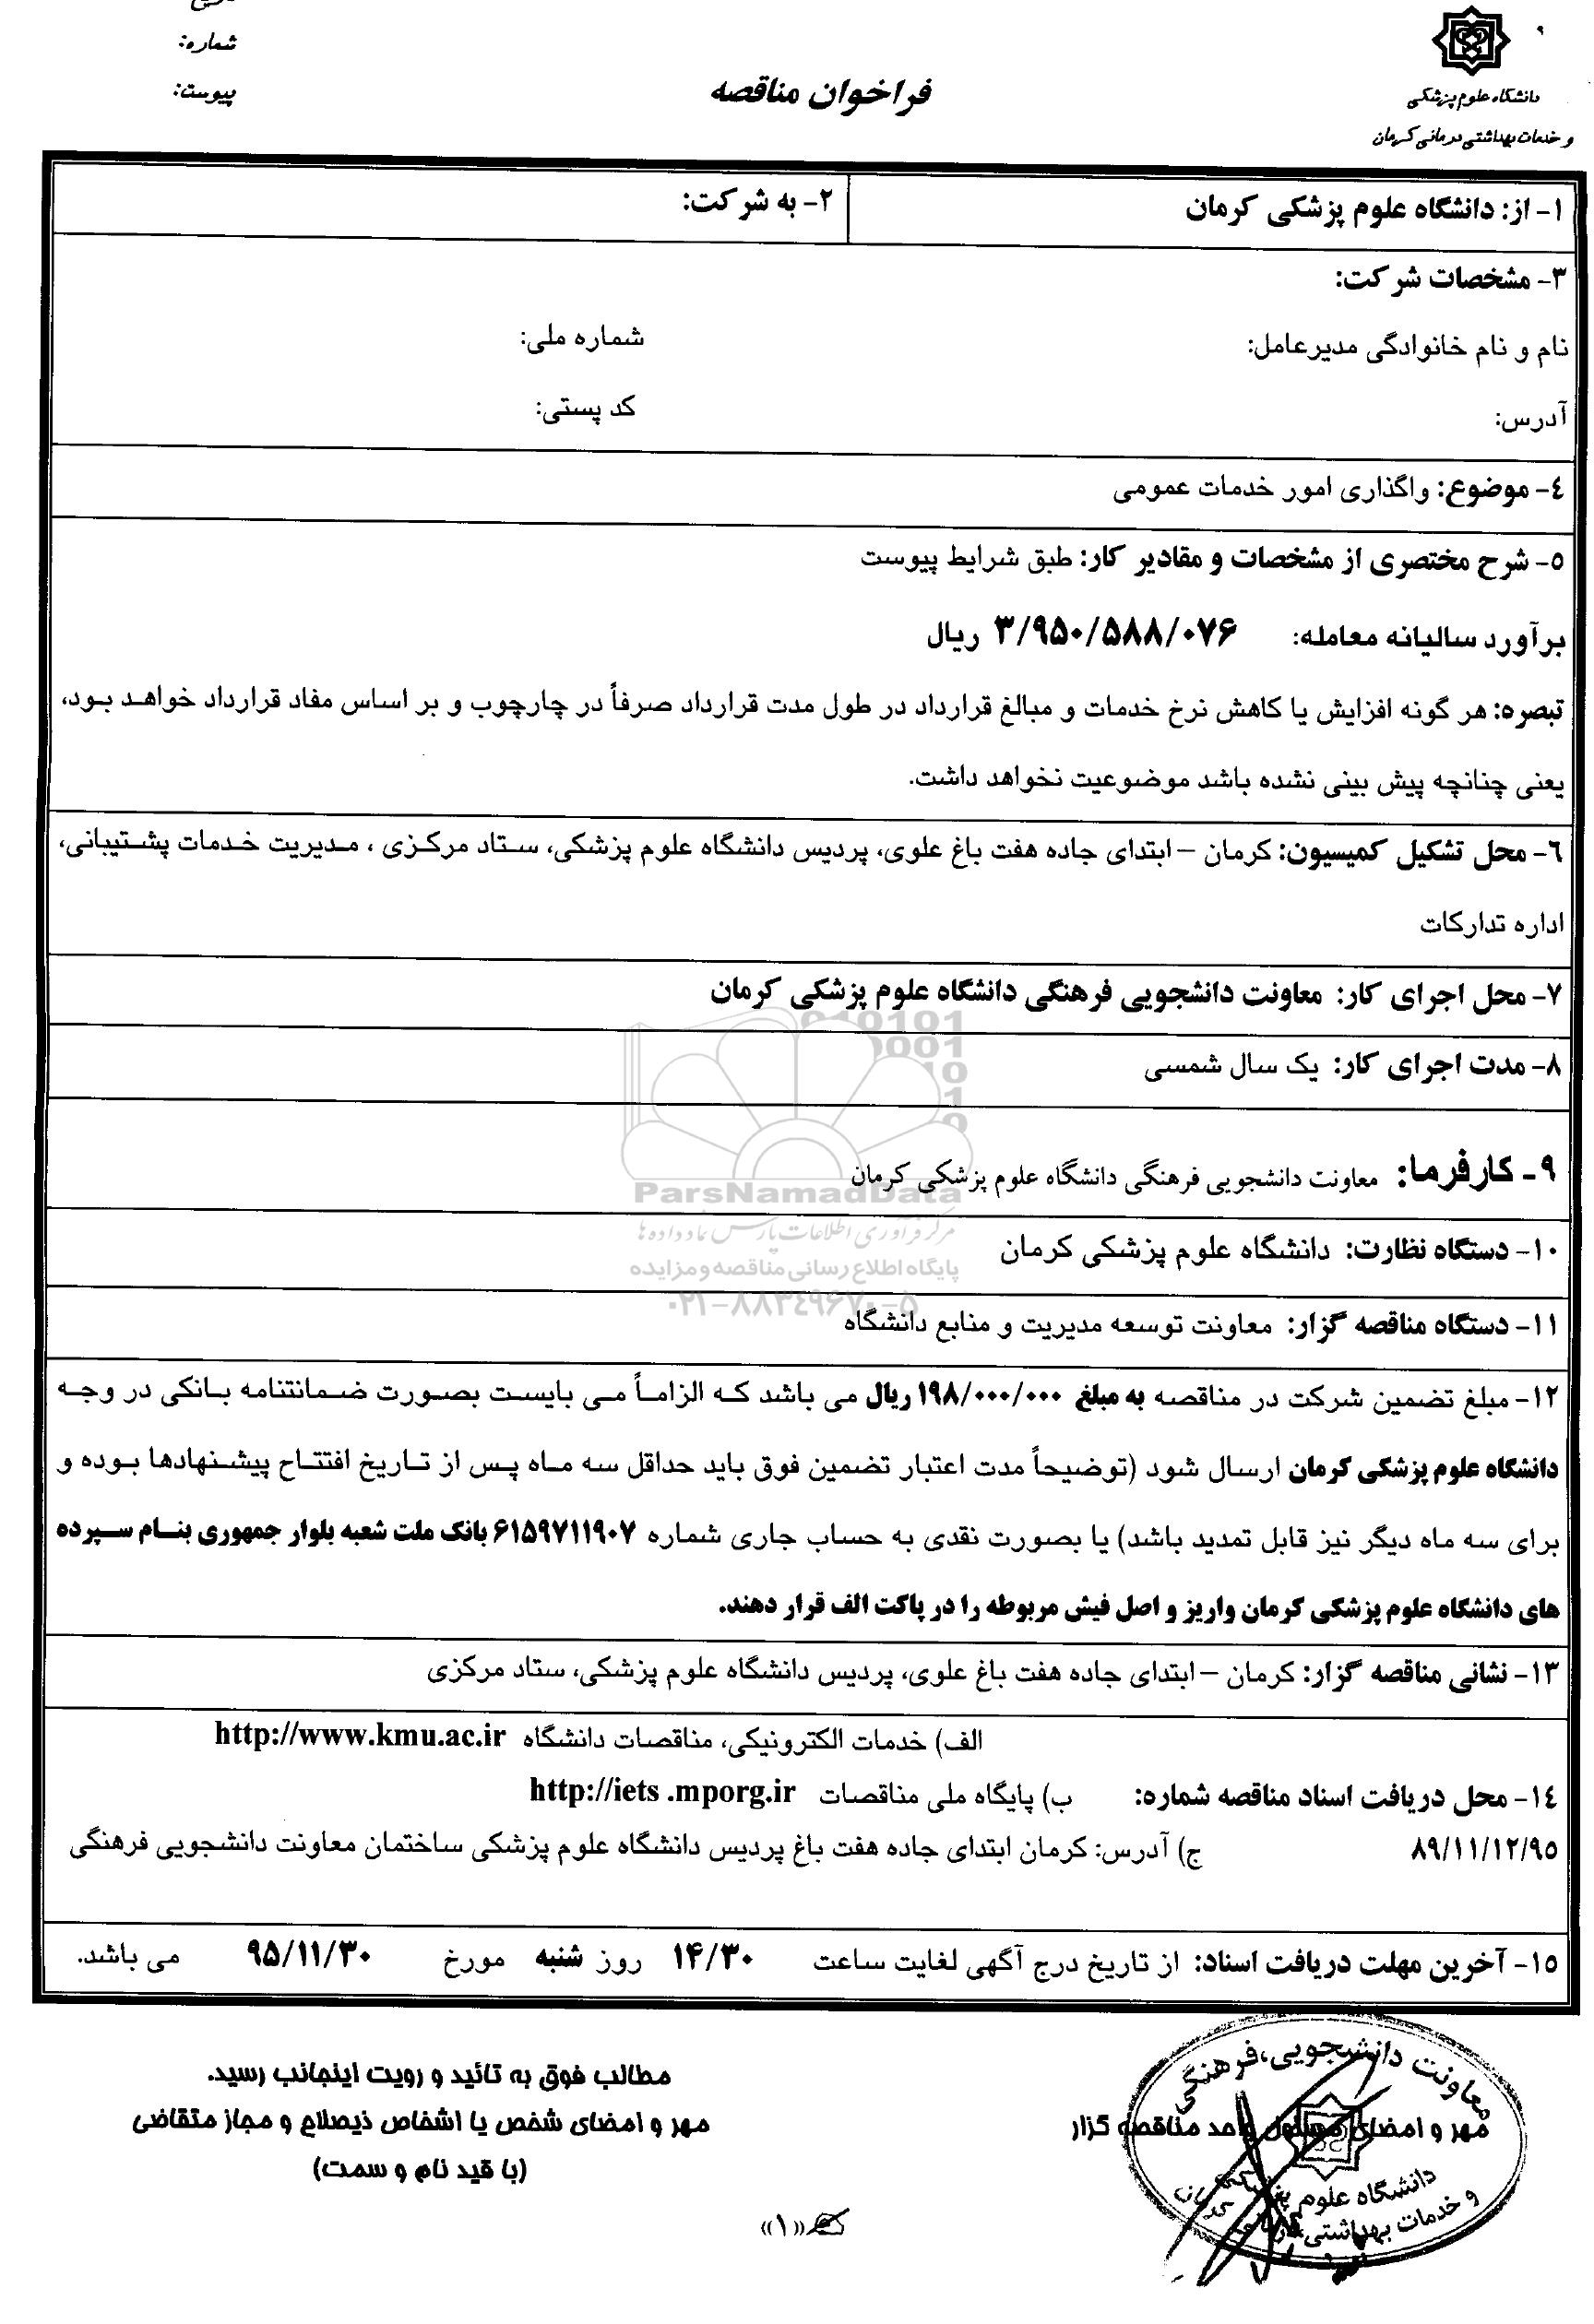 شماره:
پیوست:
دانشگاه علوم پزشکی
و خدمات بهداشتی درمانی کرمان
فراخوان مناقصه
۱- از: دانشگاه علوم پزشکی کرمان
۲- به شرکت:
۳- مشخصات شرکت:
نام و نام خانوادگی مدیرعامل: شماره ملی:
آدرس: کد پستی:
۴- موضوع: واگذاری امور خدمات عمومی
۵- شرح مختصری از مشخصات و مقادیر کار: طبق شرایط پیوست
برآورد سالیانه معامله: ۳/۹۵۰/۵۸۸/۰۷۶ ریال
تبصره: هر گونه افزایش یا کاهش نرخ خدمات و مبالغ قرارداد در طول مدت قرارداد صرفاً در چارچوب و بر اساس مفاد قرارداد خواهد بود،
یعنی چنانچه پیش بینی نشده باشد موضوعیت نخواهد داشت.
۶- محل تشکیل کمیسیون: کرمان – ابتدای جاده هفت باغ علوی، پردیس دانشگاه علوم پزشکی، ستاد مرکزی ، مدیریت خدمات پشتیبانی،
اداره تدارکات
۷- محل اجرای کار: معاونت دانشجویی فرهنگی دانشگاه علوم پزشکی کرمان
۸- مدت اجرای کار: یک سال شمسی
۹- کارفرما: معاونت دانشجویی فرهنگی دانشگاه علوم پزشکی کرمان
ParsNamadData
مرکز فرآوری اطلاعات پارس نماد داده ها
۱۰- دستگاه نظارت: دانشگاه علوم پزشکی کرمان
پایگاه اطلاع رسانی مناقصه و مزایده
۰۲۱-۸۸۳۴۹۶۷۰-۵
۱۱- دستگاه مناقصه گزار: معاونت توسعه مدیریت و منابع دانشگاه
۱۲- مبلغ تضمین شرکت در مناقصه به مبلغ ۱۹۸/۰۰۰/۰۰۰ ریال می باشد که الزاماً می بایست بصورت ضمانتنامه بانکی در وجه
دانشگاه علوم پزشکی کرمان ارسال شود (توضیحاً مدت اعتبار تضمین فوق باید حداقل سه ماه پس از تاریخ افتتاح پیشنهادها بوده و
برای سه ماه دیگر نیز قابل تمدید باشد) یا بصورت نقدی به حساب جاری شماره ۶۱۵۹۷۱۱۹۰۷ بانک ملت شعبه بلوار جمهوری بنام سپرده
های دانشگاه علوم پزشکی کرمان واریز و اصل فیش مربوطه را در پاکت الف قرار دهند.
۱۳- نشانی مناقصه گزار: کرمان – ابتدای جاده هفت باغ علوی، پردیس دانشگاه علوم پزشکی، ستاد مرکزی
الف) خدمات الکترونیکی، مناقصات دانشگاه http://www.kmu.ac.ir
۱۴- محل دریافت اسناد مناقصه شماره: ب) پایگاه ملی مناقصات http://iets .mporg.ir
۸۹/۱۱/۱۲/۹۵ ج) آدرس: کرمان ابتدای جاده هفت باغ پردیس دانشگاه علوم پزشکی ساختمان معاونت دانشجویی فرهنگی
۱۵- آخرین مهلت دریافت اسناد: از تاریخ درج آگهی لغایت ساعت ۱۴/۳۰ روز شنبه مورخ ۹۵/۱۱/۳۰ می باشد.
معاونت دانشجویی، فرهنگی
مهر و امضای مسئول واحد مناقصه گزار
دانشگاه علوم پزشکی
و خدمات بهداشتی درمانی کرمان
مطالب فوق به تائید و رویت اینجانب رسید.
مهر و امضای شخص یا اشخاص ذیصلاح و مجاز متقاضی
(با قید نام و سمت)
«۱»